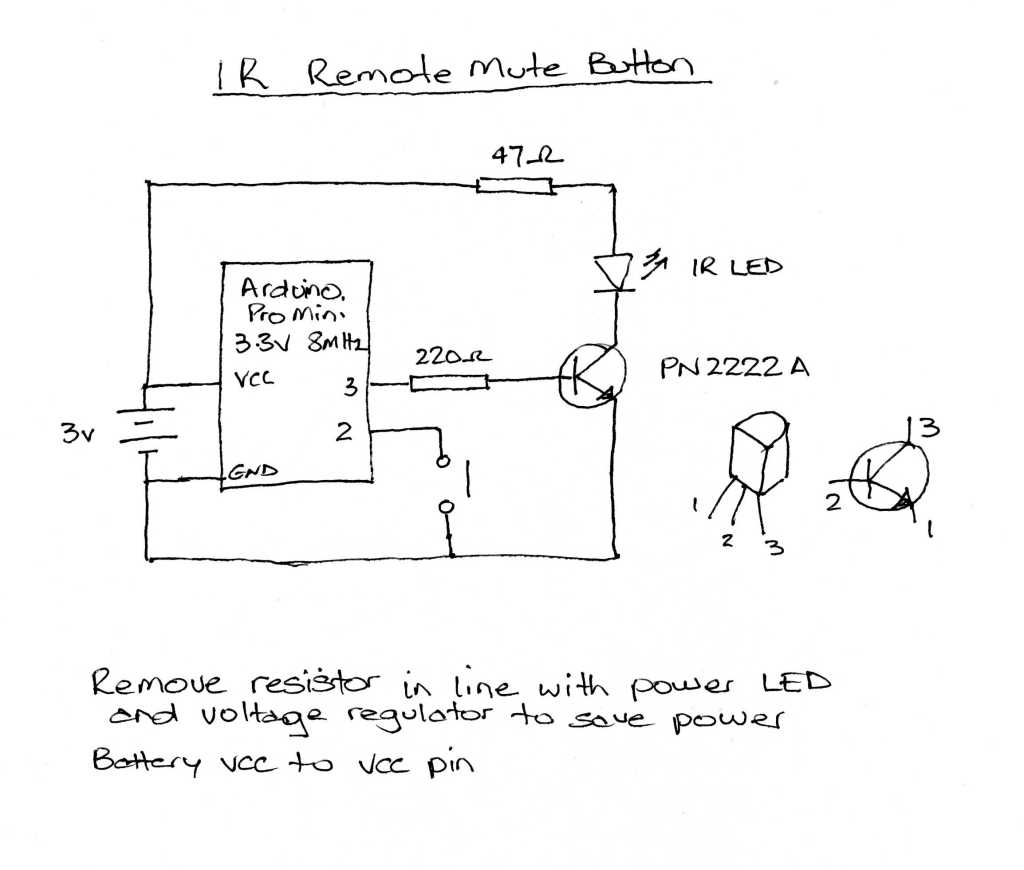 IR Remote Mute Button
47Ω
IR LED
Arduino.
Pro Mini
3.3V 8MHz
VCC
3
220Ω
PN2222A
3v
2
GND
3
2
1
1
2
3
Remove resistor in line with power LED
and voltage regulator to save power
Battery vcc to vcc pin